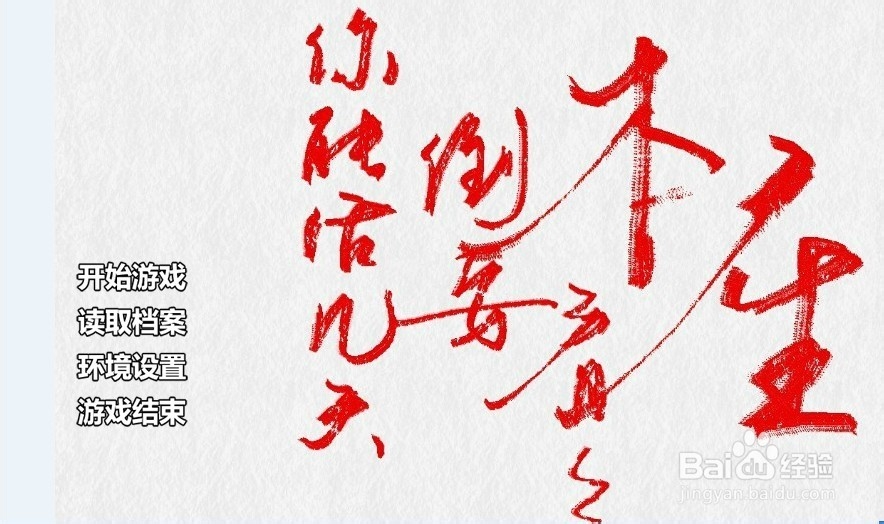 本
生
倒要看看
你能活几天
开始游戏
读取档案
环境设置
游戏结束
Baidu经验
jingyan.baidu.com